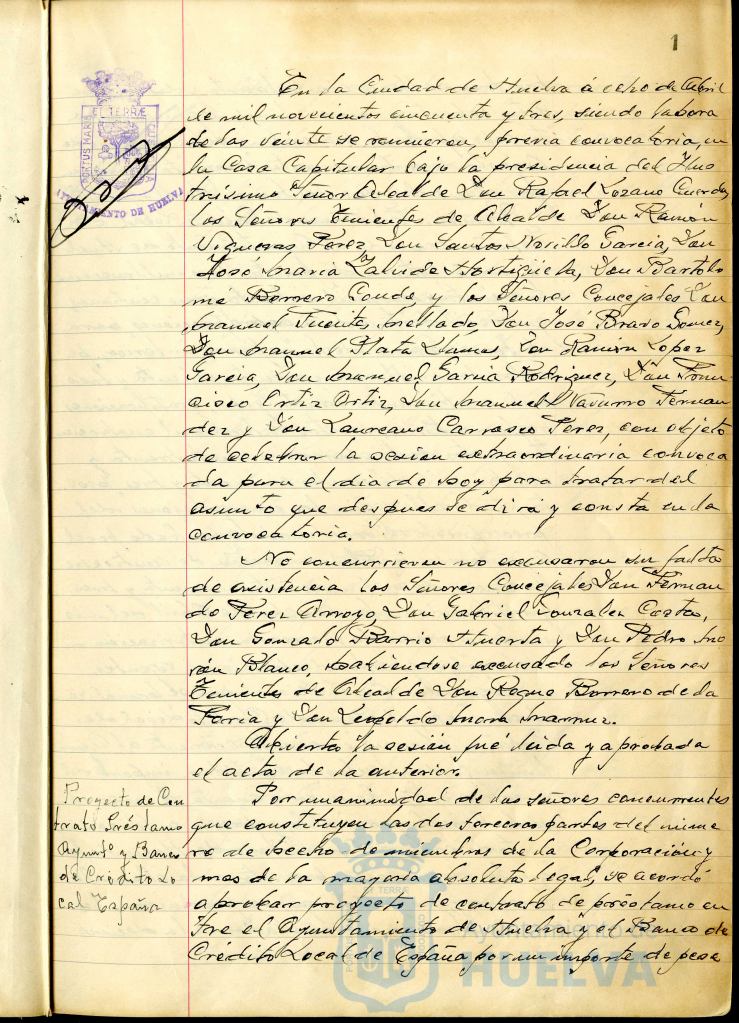 1
En la Ciudad de Huelva á ocho de Abril
de mil novecientos cincuenta y tres, siendo la hora
de las veinte se reunieron, previa convocatoria, en
la Casa Capitular bajo la presidencia del Ilus
trísimo Señor Alcalde Don Rafael Lozano Cuerda,
los Señores Tenientes de Alcalde Don Ramón
Vigueras Perez, Don Santos Novillo Garcia, Don
José Maria Zalvide Hortigüela, Don Bartolo
mé Borrero Conde, y los Señores Concejales Don
Manuel Fuentes Mellado, Don José Bravo Gomez,
Don Manuel Plata Llamas, Don Ramón Lopez
Garcia, Don Manuel Garcia Rodriguez, Don Fran
cisco Ortiz Ortiz, Don Manuel Navarro Fernan
dez y Don Laureano Carrasco Perez, con objeto
de celebrar la sesion extraordinaria convoca
da para el dia de hoy para tratar del
asunto que despues se dirá y consta en la
convocatoria.
No concurrieron no excusaron su falta
de asistencia los Señores Concejales Don Fernan
do Perez Arroyo, Don Gabriel Gonzalez Costas,
Don Gonzalo Barrio Huerta y Don Pedro Mo
rán Blanco, habiendose excusado los Señores
Tenientes de Alcalde Don Roque Borrero de la
Feria y Don Leopoldo Mora
Abierta la sesión fué leida y aprobada
el acta de la anterior.
Proyecto de Con
trato Préstamo
Ayuntº y Banco
de Crédito Lo
cal España
Por unanimidad de los señores concurrentes
que constituyen las dos terceras partes del nume
ro de hecho de miembros de la Corporación y
mas de la mayoria absoluta legal, se acordó
aprobar proyecto de contrato de préstamo en
tre el Ayuntamiento de Huelva y el Banco de
Crédito Local de España por un importe de pese
PORTUS MARIS ET TERRÆ CUSTODIA
AYUNTAMIENTO DE HUELVA
Ayuntamiento de
HUELVA